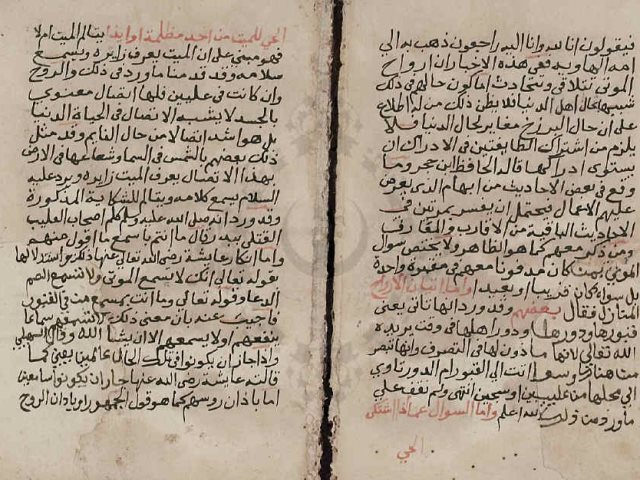 فيقولون انا لله وانا اليه راجعون ذهب به الي
امه الهاويه ففي هذه الاخبار ان ارواح
الموتي تتلاقي وتتحادث اما كون حالهم في ذلك
شبيها بحال اهل الدنيا فلا يظن ذلك من له اطلاع
علي ان حال البرزخ مغاير لحال الدنيا فلا
يلزم من اشتراك الطايفتين في الادراك ان
يستوي ادراكهما قاله الحافظ ابن حجر وما
وقع في بعض الاحاديث من ابهام الذي يعرض
عليهم الاعمال فيحتمل ان يفسر بمن في
الاحاديث الباقية من الاقارب والمعارف
ومن ذكر معهم كما هو الظاهر ولا يختص سوال
الموتي بمن كان مدفونا معهم في مقبرة واحدة
بل سواء كان قريبا او بعيدا واما اتيان الارواح
المنازل فقال بعضهم وقد ورد انها تاتي يعني
قبورها ودورها ودور اهلها في وقت يريده
الله تعالي لانها ماذون لها في التصرف وانها تبصر
من هناك وسوا اتت الي القبور ام الدور تاوي
الي محلها من عليين او سجين انتهي ولم نقف علي
ما ورد من ذلك والله اعلم واما السوال عما اذا اشتكي
الحي
الحي للميت من احد مظلمة او ايذا يتالم الميت ام لا
فهو مبني علي ان الميت يعرف زايره ويسمع
سلامه وقد قدمنا ما ورد في ذلك والروح
وان كانت في عليين فلها اتصال معنوي
بالجسد لا يشبه الاتصال في الحياة الدنيا
بل هو اشد اتصالا من حال النايم وقد مثل
ذلك بعضهم بالشمس في السما وشعاعها في الارض
بهذا الاتصال يعرف الميت زايره ويرد عليه
السلام ويسمع كلامه ويتالم للشكاية المذكورة
وقد ورد انه صلي الله عليه وسلم كلم اصحاب القليب
القتلي ببدر وقال ما انتم باسمع ما اقول منهم
واما انكار عايشة رضي الله تعالي عنها ذلك واستدلالها
بقوله تعالي انك لا تسمع الموتي ولا تسمع الصم
الدعا وقوله تعالي وما انت بمسمع من في القبور
فاجيب عنه بان معني ذلك لا تسمعهم سماعا
ينفعهم او لا يسمعهم الا ان يشا الله وقال السهيلي
واذا جاز ان يكونوا في تلك الحال عالمين يعني كما
قالته عايشة رضي الله عنها جاز ان يكونوا سامعين
اما باذان روسهم كما هو قول الجمهور او باذان الروح